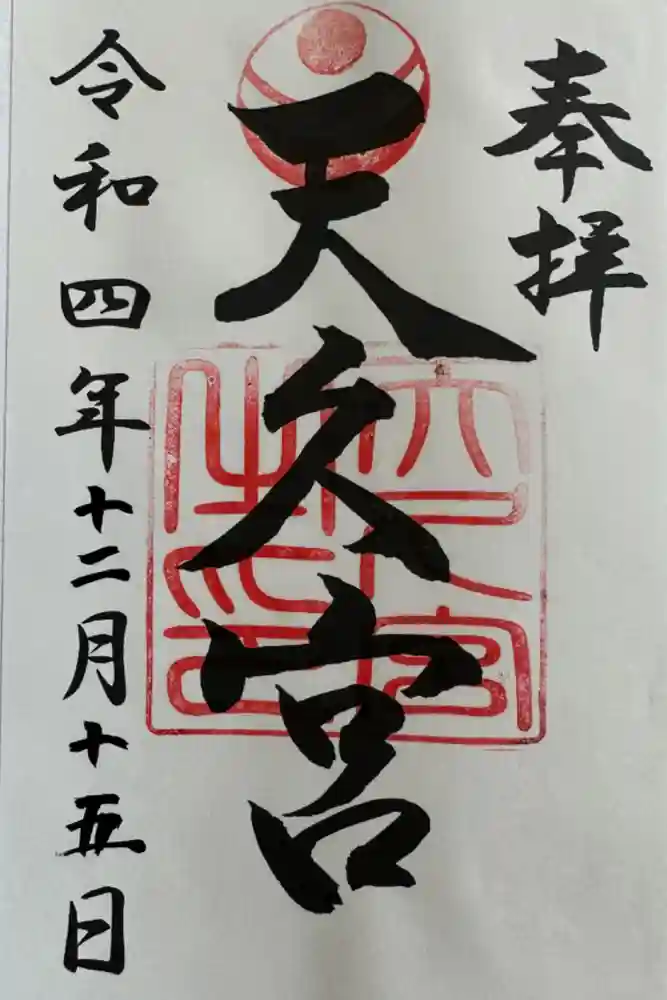 奉拝
天久宮
令和四年十二月十五日
天久宮之印